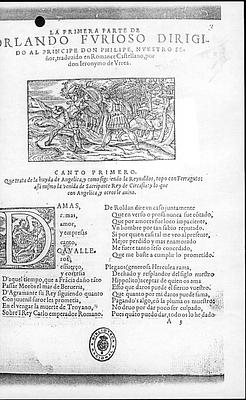 LA PRIMERA PARTE DE
ORLANDO FVRIOSO DIRIGI-
DO AL PRINCIPE DON PHILIPE, NVESTRO SE-
ñor, traduzido en Romance Castellano, por
don Ieronymo de Vrrea.
CANTO PRIMERO.
Que trata de la huyda de Angelica, y como siguiendo la Reynaldos, topo con Ferraguto:
assi mismo la venida de Sacripante Rey de Circassia: y lo que
con Angelica, y otros le auino.
DAMAS,
armas,
amor,
y empresas
canto,
CAVALLE-
ros,
esfuerço,
y cortesia
D'aquel tiempo, que a Frãcia dañò tãto
Passar Moros el mar de Berueria,
D'Agramante su Rey siguiendo quanto
Con juuenil furor les prometia,
En el vengar la muerte de Troyano,
Sobre'l Rey Carlo emperador Romano.
De Roldan dire vn caso juntamente
Que en verso o prosa nunca fue cõtado,
Que por amores fue loco impaciente,
Vn hombre por tan sabio reputado.
Si por quien casi tal me veo al presente,
Mejor perdido y mas enamorado
Me fuere tanto seso concedido,
Que me baste a cumplir lo prometido.
Plegaos generosa Herculea rama,
Dechado y resplandor del siglo nuestro
Hippolito aceptar de quien os ama
Esso que daros puede el sieruo vuestro.
Que quanto por mi daros puede fama,
Pagando's algo, es la pluma os muestro:
No deuo por dar poco ser culpado,
Pues quãto puedo dar, todo os lo he dado
A 3